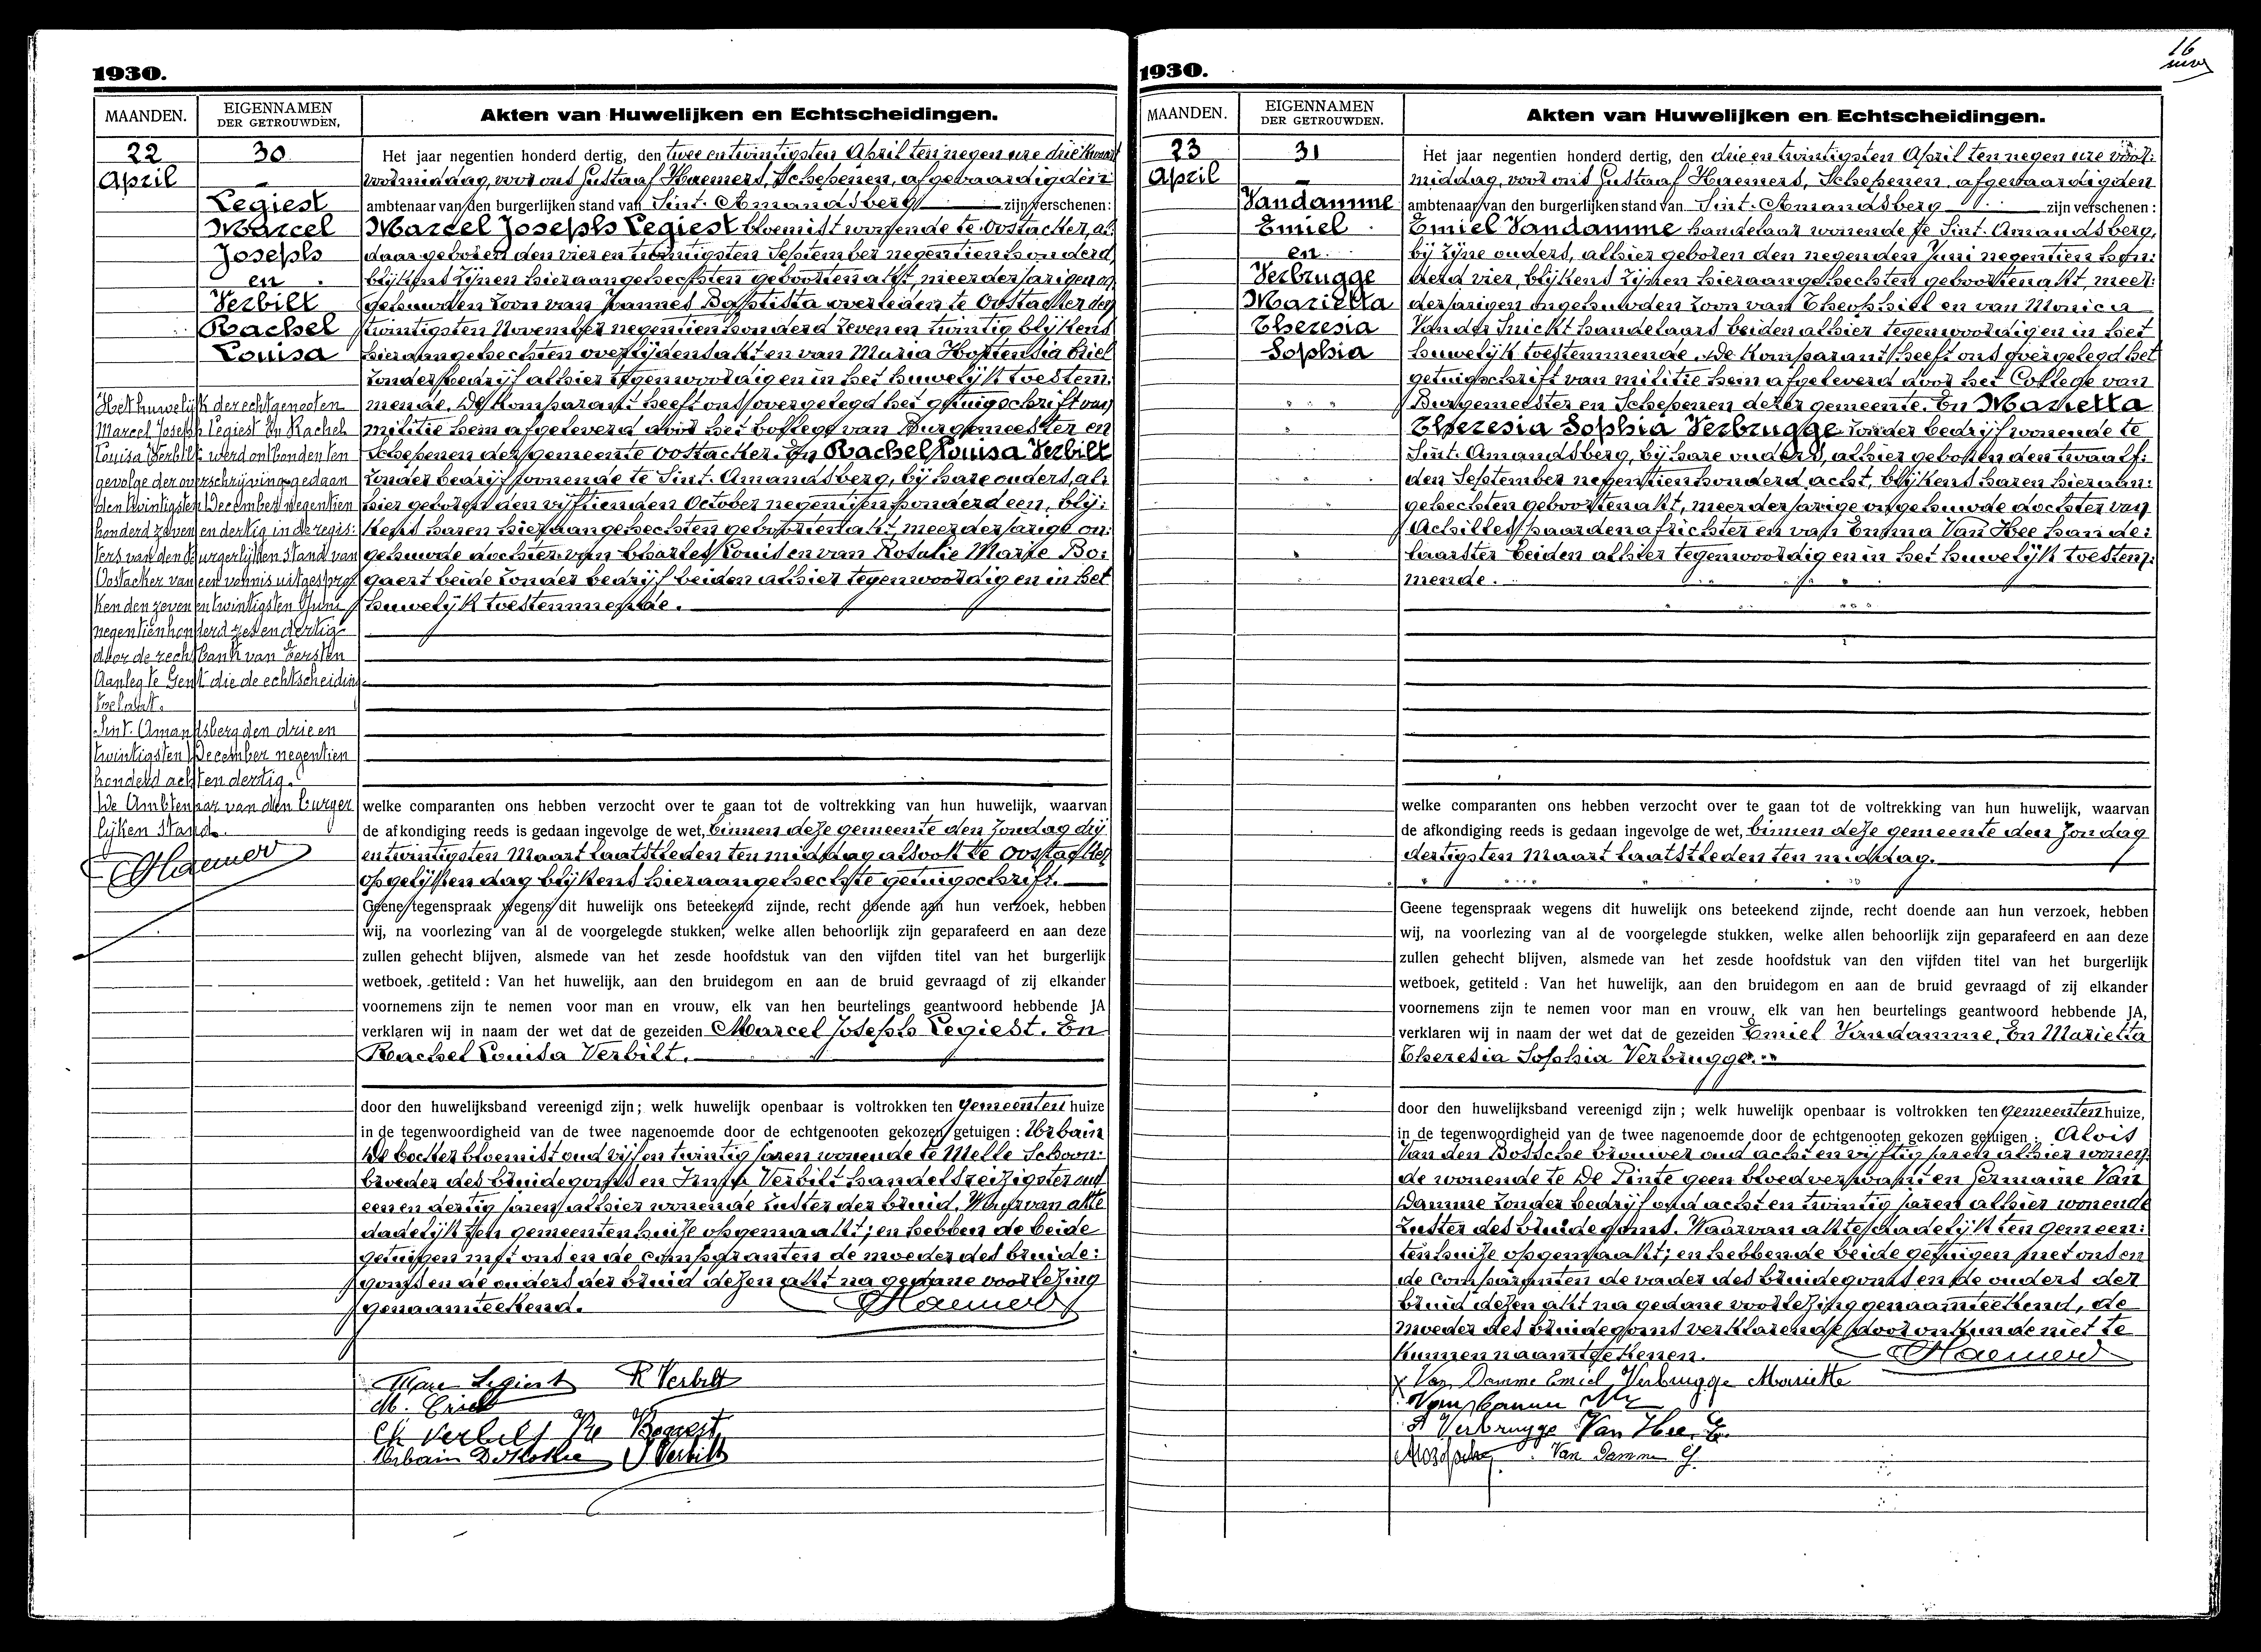 1930.
MAANDEN.
EIGENNAMEN
DER GETROUWDEN.
Akten van Huwelijken en Echtscheidingen.
22
April
30
Legiest
Marcel
Joseph
en
Verbilt
Rachel
Louisa
Het huwelijk der echtgenooten
Marcel Joseph Legiest En Rachel
Louisa Verbilt werd ontbonden ten
gevolge der overschrijving gedaan
den twintigsten December negentien
honderd zeven en dertig in de regis:
ters van den burgerlijken stand van
Oostacker van een vonnis uitgespro
ken den zeven en twintigsten Juni
negentienhonderd zes en dertig
door de rechtbank van Eersten
Aanleg te Gent die de echtscheiding
toelaat.
Sint-Amandsberg den drie en
twintigsten December negentien
honderd acht en dertig.
De Ambtenaar van den burger
lijken stand.
Het jaar negentien honderd dertig, den twee en twintigsten April ten negen ure drie kwart
voormiddag, voor ons Gustaaf Haemers, Schepenen, afgevaardigden
ambtenaar van den burgerlijken stand van Sint-Amandsberg zijn verschenen:
Marcel Joseph Legiest bloemist wonende te Oostacker, al:
daar geboren den vier en twintigsten September negentienhonderd,
blijkens zijnen hieraangehechten geboortenakt, meerderjarigen on
gehuwden zoon van Joannes Baptista overleden te Oostacker den
twintigsten November negentienhonderd zeven en twintig blijkens
hieraangehechten overlijdensakt en van Maria Hortensia Criel
zonder bedrijf alhier tegenwoordig en in het huwelijk toestem:
mende. De Komparant heeft ons overgelegd het getuigschrift van
militie hem afgeleverd door het College van Burgemeester en
Schepenen der gemeente Oostacker. En Rachel Louisa Verbilt
zonder bedrijf wonende te Sint-Amandsberg, bij hare ouders, al:
hier geboren den vijftienden October negentienhonderd een, blij:
kens haren hieraangehechten geboortenakt, meerderjarige on:
gehuwde dochter van Charles Louis en van Rosalie Marie Bo:
gaert beide zonder bedrijf beiden alhier tegenwoordig en in het
huwelijk toestemmende.
welke comparanten ons hebben verzocht over te gaan tot de voltrekking van hun huwelijk, waarvan
de afkondiging reeds is gedaan ingevolge de wet, binnen deze gemeente den Zondag drij
en twintigsten Maart laatstleden ten middag alsook te Oostacker
op gelijken dag blijkens hieraangehechte getuigschrift.
Geene tegenspraak wegens dit huwelijk ons beteekend zijnde, recht doende aan hun verzoek, hebben
wij, na voorlezing van al de voorgelegde stukken, welke allen behoorlijk zijn geparafeerd en aan deze
zullen gehecht blijven, alsmede van het zesde hoofdstuk van den vijfden titel van het burgerlijk
wetboek, getiteld: Van het huwelijk, aan den bruidegom en aan de bruid gevraagd of zij elkander
voornemens zijn te nemen voor man en vrouw, elk van hen beurtelings geantwoord hebbende JA
verklaren wij in naam der wet dat de gezeiden Marcel Joseph Legiest. En
Rachel Louisa Verbilt.
door den huwelijksband vereenigd zijn; welk huwelijk openbaar is voltrokken ten gemeenten huize
in de tegenwoordigheid van de twee nagenoemde door de echtgenooten gekozen getuigen: Urbain
bloemist oud vijf en twintig jaren wonende te Melle Schoon:
broeder des bruidegoms en Verbilt handelsreizigster oud
een en dertig jaren alhier wonende zuster der bruid. Waarvan akte
dadelijk ten gemeentenhuize opgemaakt; en hebben de beide
getuigen met ons en de comparanten de moeder des bruide:
goms en de ouders der bruid dezen akt na gedane voorlezing
genaamteekend.
Marc Legiest R Verbilt
M. Criel
Ch Verbilt Bogaert
Urbain Verbilt
16
1930.
MAANDEN.
EIGENNAMEN
DER GETROUWDEN.
Akten van Huwelijken en Echtscheidingen.
23
April
31
Vandamme
Emiel
en
Verbrugge
Marietta
Theresia
Sophia
Het jaar negentien honderd dertig, den drie en twintigsten April ten negen ure voor:
middag, voor ons Gustaaf Haemers, Schepenen, afgevaardigden
ambtenaar van den burgerlijken stand van Sint-Amandsberg zijn verschenen:
Emiel Vandamme handelaar wonende te Sint-Amandsberg,
bij zijne ouders, alhier geboren den negenden Juni negentien hon:
derd vier, blijkens zijnen hieraangehechten geboortenakt, meer:
derjarigen ongehuwden zoon van Theophiel en van Monica
Van der Snickt handelaars beiden alhier tegenwoordig en in het
huwelijk toestemmende. De Komparant heeft ons overgelegd het
getuigschrift van militie hem afgeleverd door het College van
Burgemeester en Schepenen dezer gemeente. En Marietta
Theresia Sophia Verbrugge zonder bedrijf wonende te
Sint-Amandsberg, bij hare ouders, alhier geboren den twaalf:
den September negentienhonderd acht, blijkens haren hieraan:
gehechten geboortenakt, meerderjarige ongehuwde dochter van
Achilles paardenafrichter en van Emma Van Hee hande:
laarster beiden alhier tegenwoordig en in het huwelijk toestem:
mende.
welke comparanten ons hebben verzocht over te gaan tot de voltrekking van hun huwelijk, waarvan
de afkondiging reeds is gedaan ingevolge de wet, binnen deze gemeente den Zondag
dertigsten Maart laatstleden ten middag.
Geene tegenspraak wegens dit huwelijk ons beteekend zijnde, recht doende aan hun verzoek, hebben
wij, na voorlezing van al de voorgelegde stukken, welke allen behoorlijk zijn geparafeerd en aan deze
zullen gehecht blijven, alsmede van het zesde hoofdstuk van den vijfden titel van het burgerlijk
wetboek, getiteld: Van het huwelijk, aan den bruidegom en aan de bruid gevraagd of zij elkander
voornemens zijn te nemen voor man en vrouw, elk van hen beurtelings geantwoord hebbende JA,
verklaren wij in naam der wet dat de gezeiden Emiel Vandamme, En Marietta
Theresia Sophia Verbrugge.
door den huwelijksband vereenigd zijn; welk huwelijk openbaar is voltrokken ten gemeenten huize,
in de tegenwoordigheid van de twee nagenoemde door de echtgenooten gekozen getuigen: Alois
Van den Bossche brouwer oud acht en vijftig jaren alhier wonen:
de wonende te De Pinte geen bloedverwant en Germaine Van
Damme zonder bedrijf oud acht en twintig jaren alhier wonende
zuster des bruidegoms. Waarvan akte dadelijk ten gemeen:
tenhuize opgemaakt; en hebben de beide getuigen met ons en
de comparanten de vader des bruidegoms en de ouders der
bruid dezen akt na gedane voorlezing genaamteekend, de
moeder des bruidegoms verklarende door onkunde niet te
kunnen naamteekenen.
Van Damme Emiel Verbrugge Mariette
A Verbrugge Van Hee E.
Van Damme G.